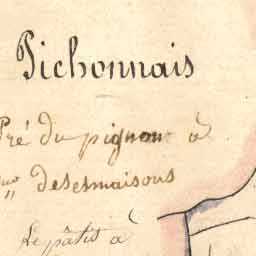 Pichonnais
Pré du pignon à
desesmaisous
Le pâtis à